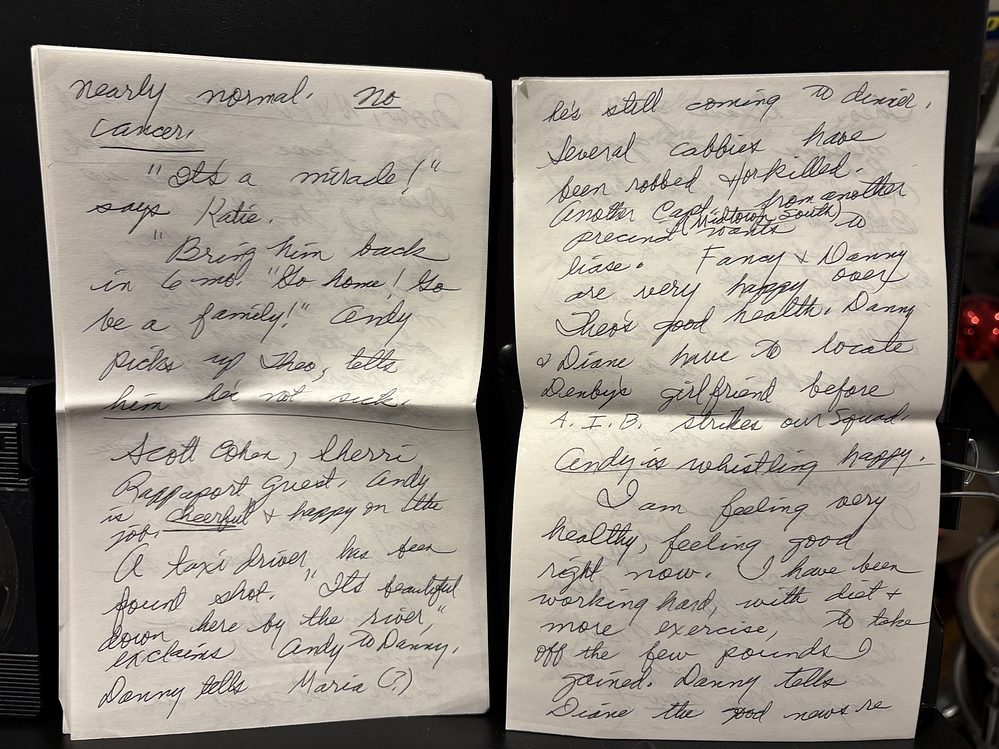 nearly normal. no
cancer.
"It's a miracle!"
says Katie.
"Bring him back
in 6 mo." "Go home! Go
be a family!" Andy
picks up Theo, tells
him he's not sick.
Scott Cohen, Sherri
Rappaport guest. Andy
is cheerful & happy on the
job.
A taxi driver has been
found shot. "It's beautiful
down here by the river"
exclaims Andy to Danny.
Danny tells Maria (?)
he's still coming to dinner.
Several cabbies have
been robbed &/or killed.
Another Capt. from another
precinct (Midtown South) wants to
liase. Fancy & Danny
are very happy over
Theo's good health. Danny
& Diane have to locate
Denby's girlfriend before
A. I. B. strikes our Squad.
Andy is whistling happy.
I am feeling very
healthy, feeling good
right now. I have been
working hard, with diet &
more exercise, to take
off the few pounds I
gained. Danny tells
Diane the good news re